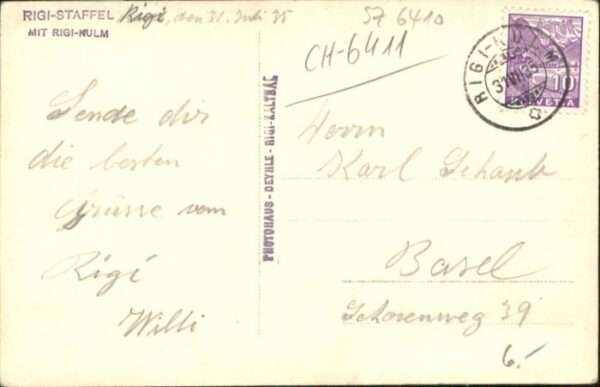 RIGI-STAFFEL
MIT RIGI-KULM
Rigi, den 31. Juli 35
SZ 6410
CH-6411
Sende dir
die besten
Grüsse vom
Rigi
Willi
PHOTOHAUS - DEYHLE - RIGI-KALTBAD
Herrn
Karl Schaub
Basel
Schorenweg 39
6.-
RIGI-KULM
31.VII.35
10
HELVETIA